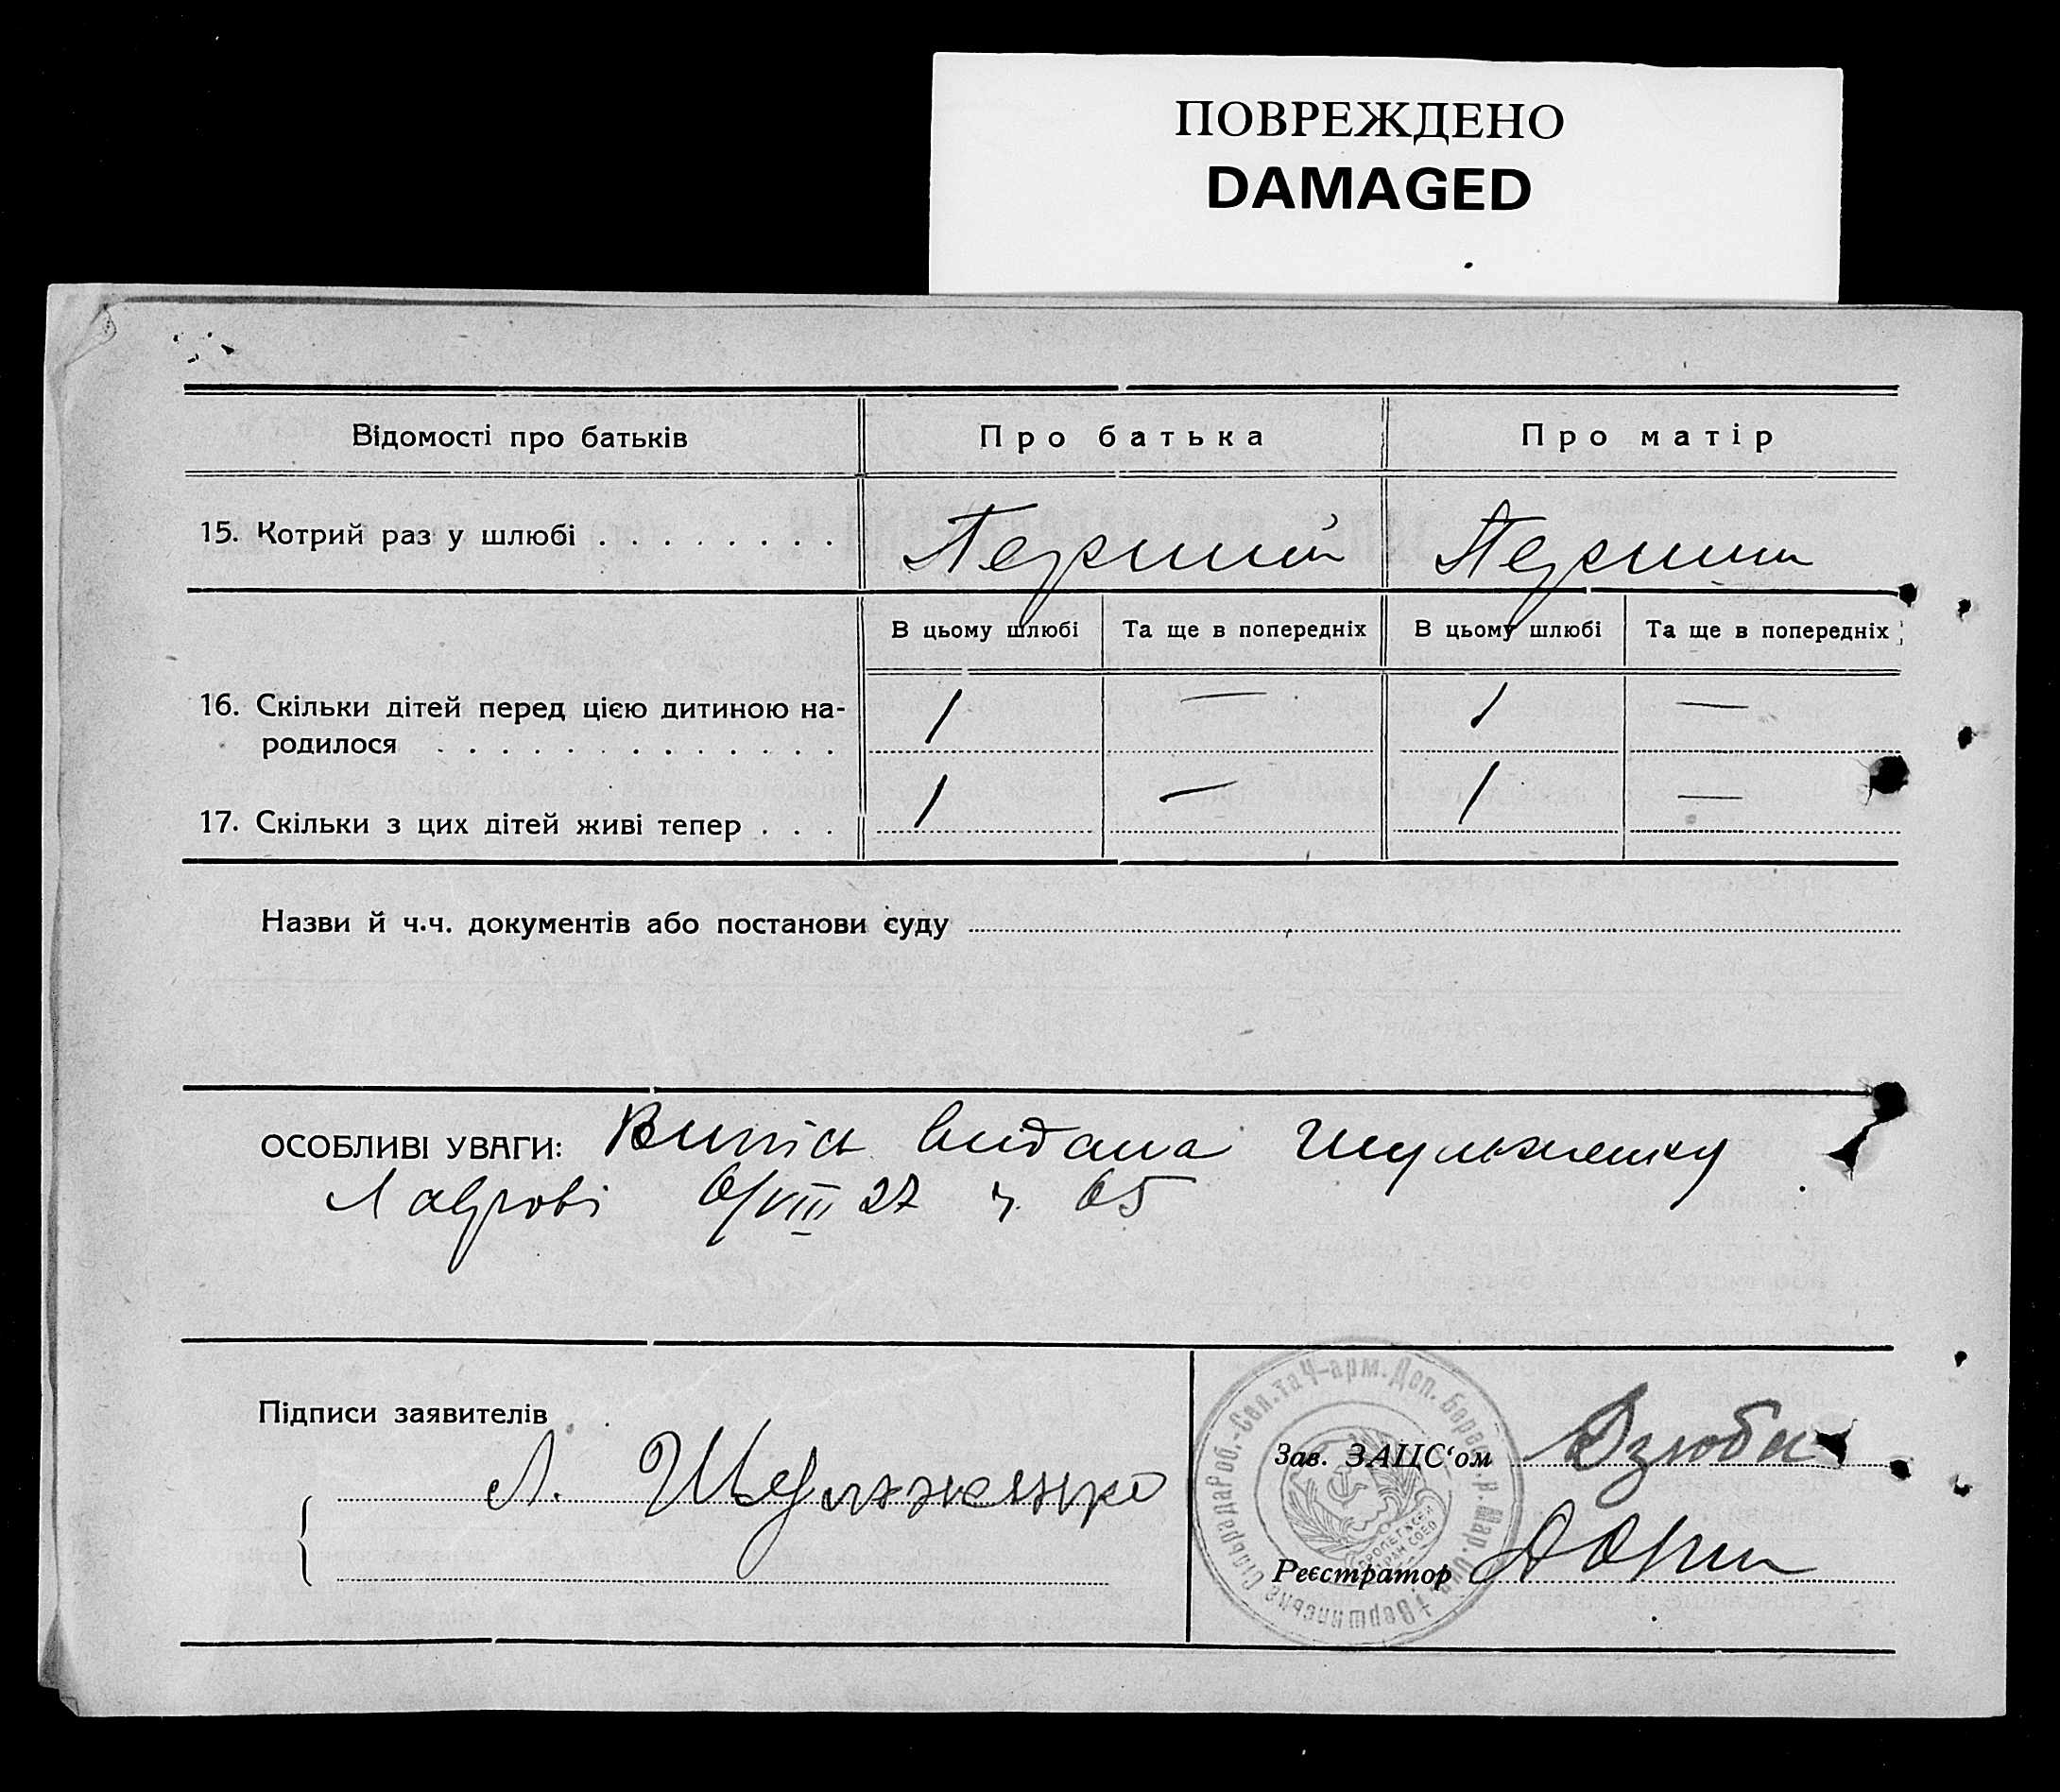 ПОВРЕЖДЕНО
DAMAGED
Відомості про батьків
Про батька
Про матір
15. Котрий раз у шлюбі . . . . . . . .
Перший
Перший
В цьому шлюбі
Та ще в попередніх
В цьому шлюбі
Та ще в попередніх
16. Скільки дітей перед цією дитиною на-
родилося . . . . . . . . . . . . .
1 — 1 —
17. Скільки з цих дітей живі тепер . . .
1 — 1 —
Назви й ч.ч. документів або постанови суду
ОСОБЛИВІ УВАГИ: Випись видана Шульженку
Лаврові 6/VIII 27 ч. 65
Підписи заявителів
Л. Шульженко
Зав. ЗАЦС‘ом Дзюба
Реєстратор
Сільрада Роб.-Сел. та Ч-арм. Деп.